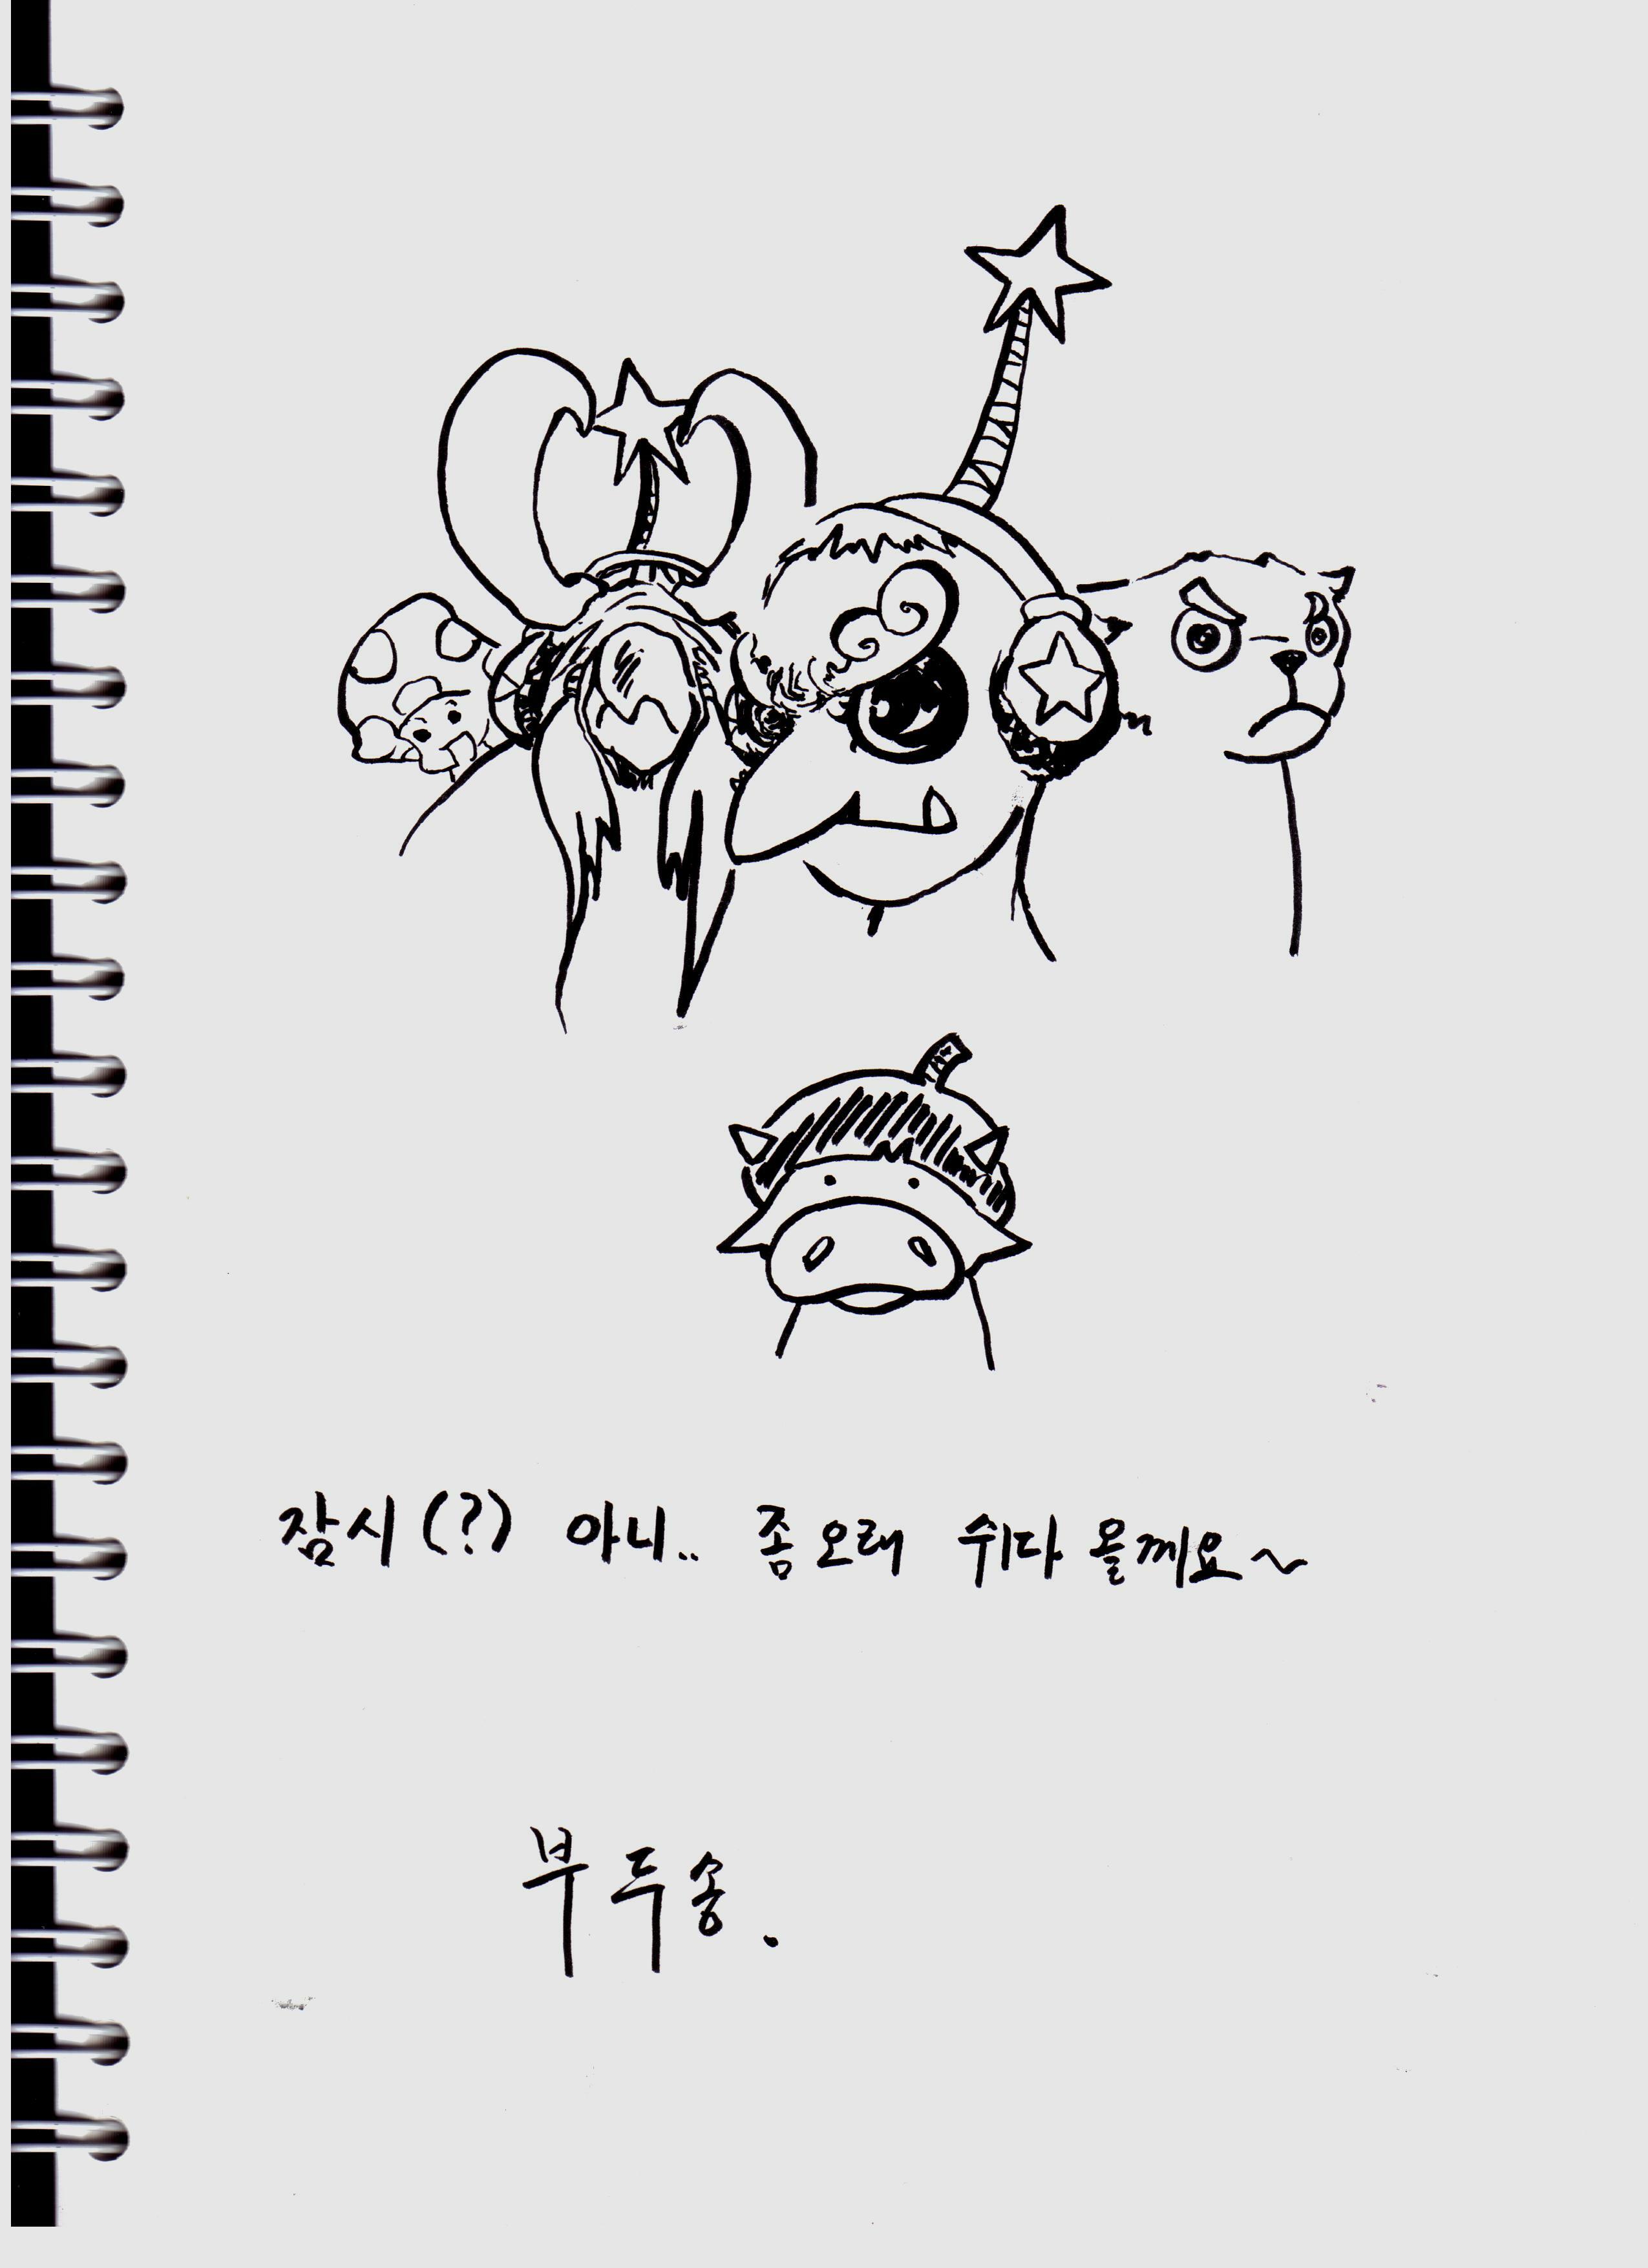 잠시(?) 아니.. 좀 오래 쉬다 올께요~
부두송.